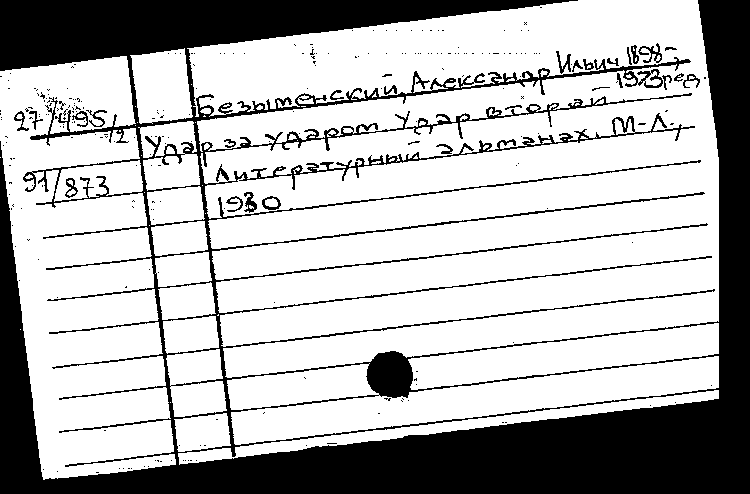 Безыменский, Александр Ильич 1898-
1973, ред.
27/495/2
Удар за ударом. Удар второй.
Литературный альманах. М-Л.,
91/873
1930